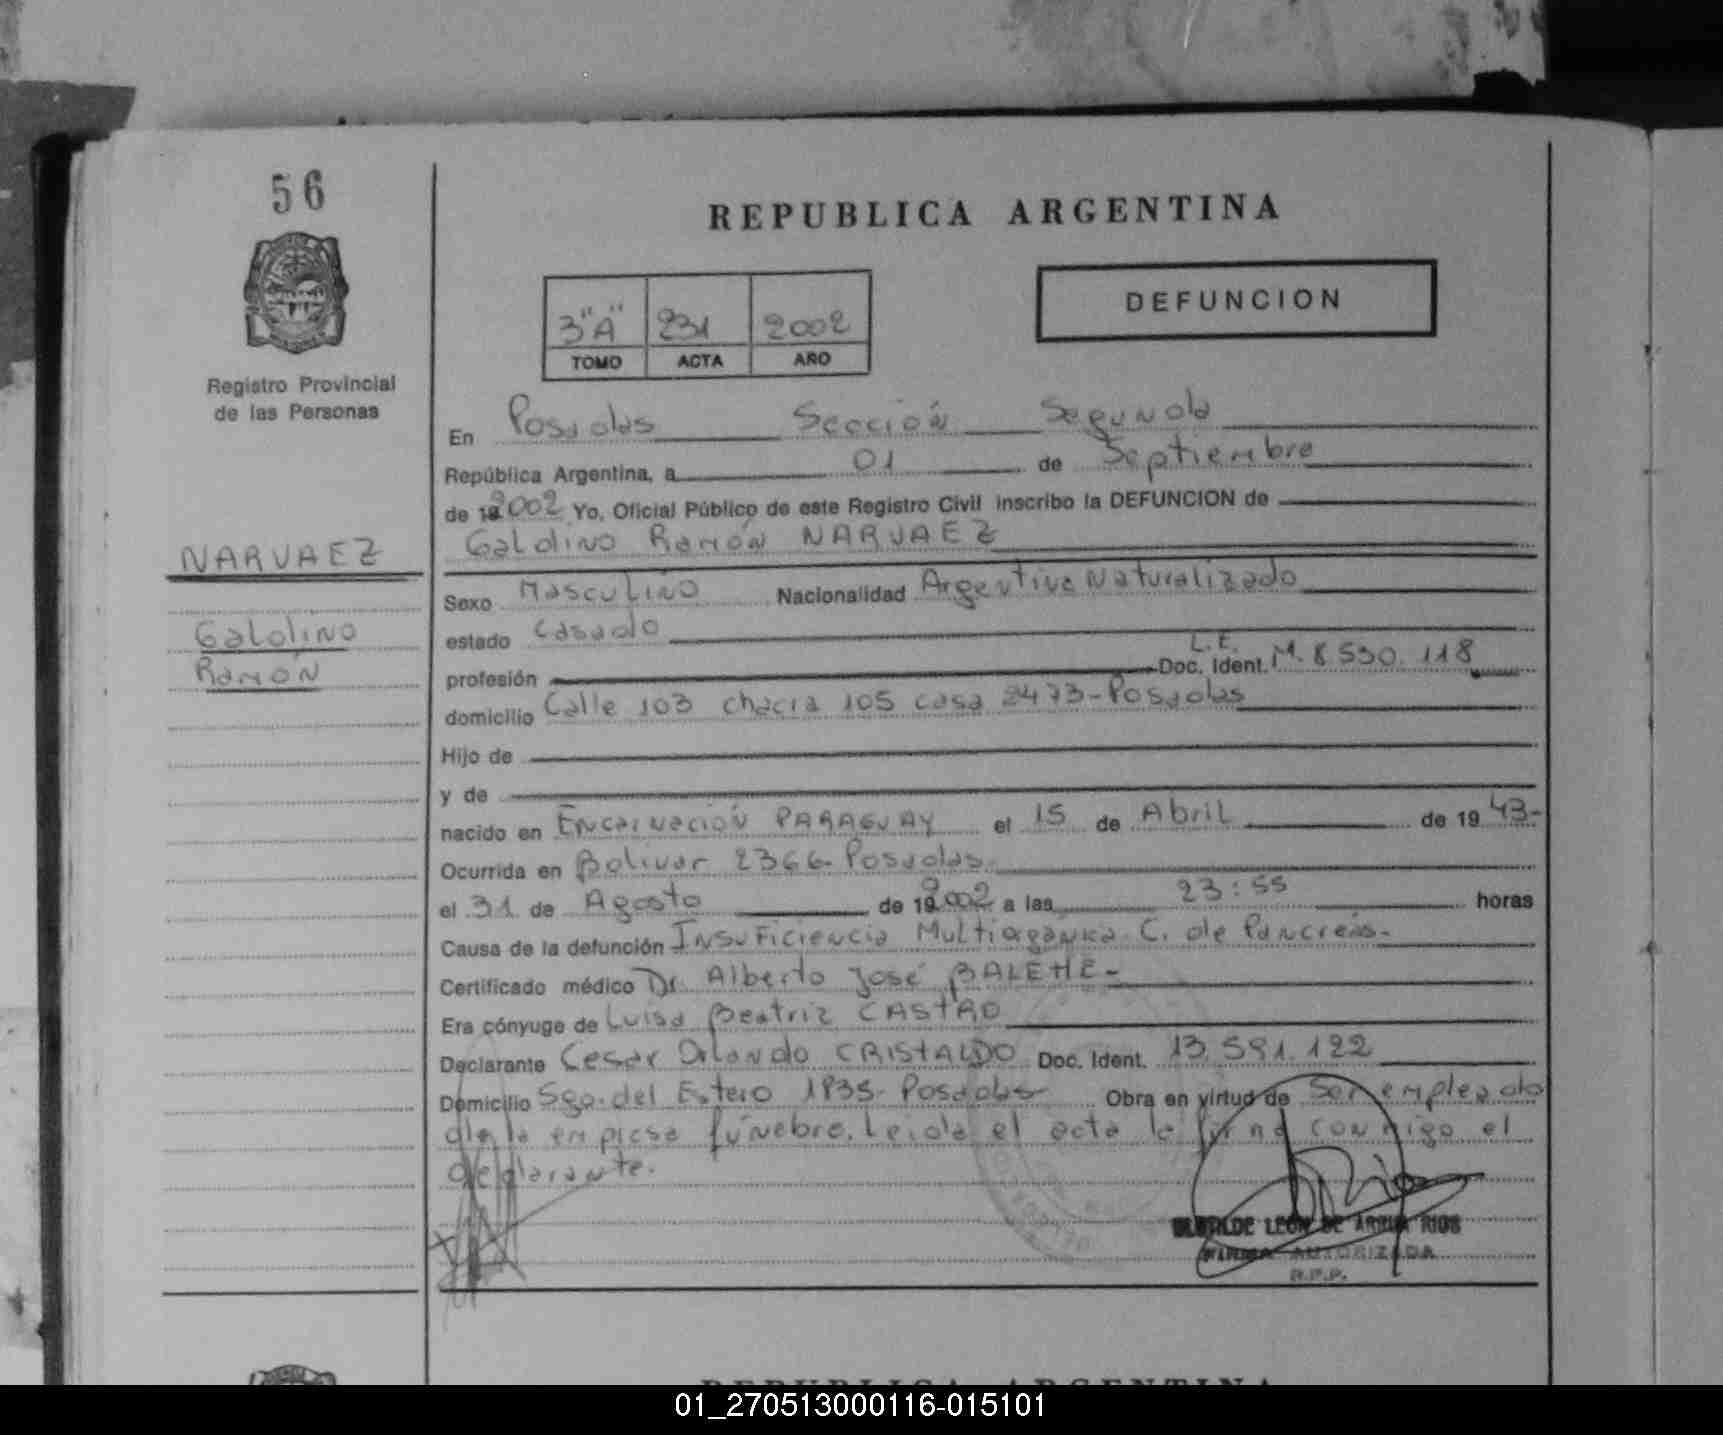 56
REPUBLICA ARGENTINA
DEFUNCION
3"A" 231 2002
TOMO ACTA AÑO
Registro Provincial
de las Personas
En Posadas Sección Segunda
República Argentina, a 01 de Septiembre
de 2002 Yo, Oficial Público de este Registro Civil inscribo la DEFUNCION de
Galdino Ramón NARVAEZ
NARVAEZ
Galdino
Ramón
Sexo Masculino Nacionalidad Argentino Naturalizado
estado Casado
profesión L.E. Doc. Ident. M. 8.530.118
domicilio Calle 103 chacra 105 casa 2473-Posadas
Hijo de
y de
nacido en Encarnación PARAGUAY el 15 de Abril de 1943-
Ocurrida en Bolivar 2366. Posadas.
el 31 de Agosto de 2002 a las 23:55 horas
Causa de la defunción Insuficiencia Multiorganica. C. de Pancreás.
Certificado médico Dr. Alberto José BALEHE-
Era cónyuge de Luisa Beatriz CASTRO
Declarante Cesar Orlando CRISTALDO Doc. Ident. 13.591.122
Domicilio Sgo. del Estero 1835- Posadas Obra en virtud de Ser empleado
de la empresa fúnebre. Leida el acta la firma conmigo el
declarante.
LEON DE RIOS
FIRMA AUTORIZADA
R.P.P.
REPUBLICA ARGENTINA
01_270513000116-015101